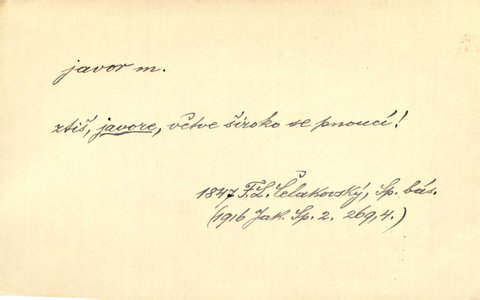 javor m.
ztiš, javore, větve široko se pnoucí!
1847 F. L. Čelakovský, Sp. bás.
(1916 Jak. Sp. 2. 269,4.)